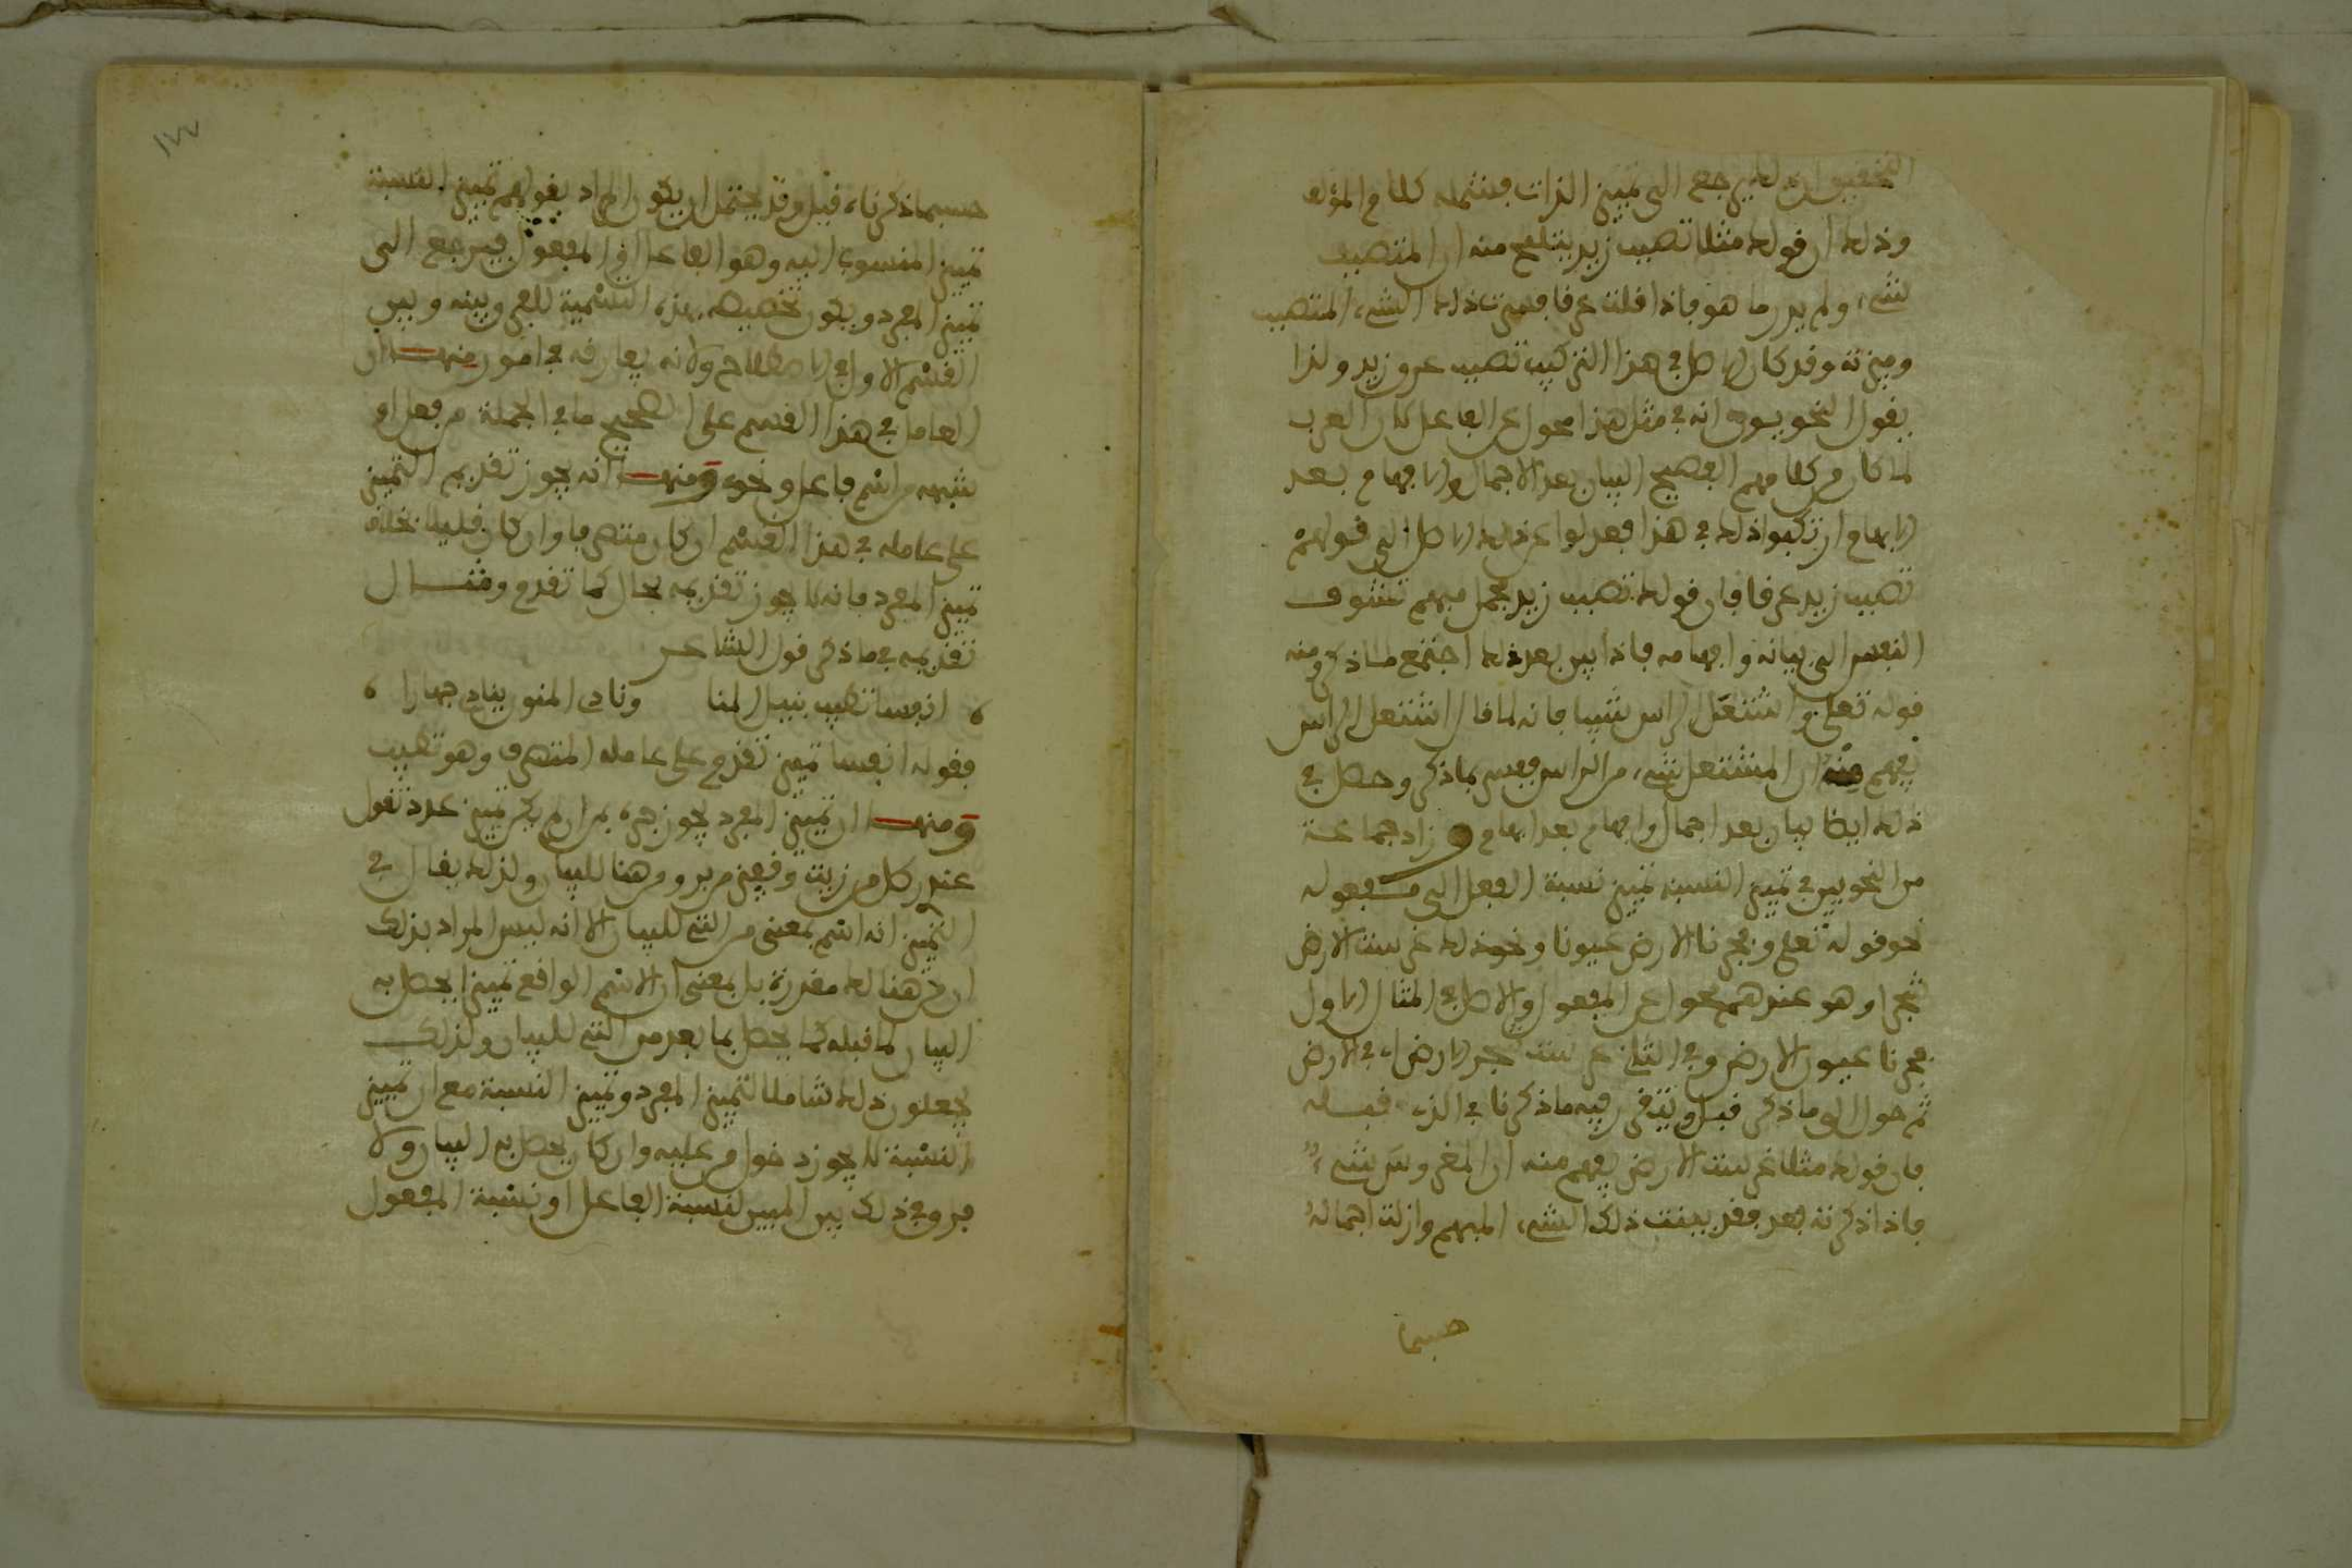 التحقيق ان ذلك يرجع الى تمييز الذات فيشمله كلام المؤلف
وذلك ان قولك مثلا تصبب زيد يتلمح منه ان المتصبب
شيء ولم يدر ما هو فاذا قلت عرقا فسرت ذلك الشيء المتصبب
وميزته وقد كان الاصل في هذا التركيب تصبب عرق زيد ولذا
يقول النحويون انه في مثل هذا محول عن الفاعل لاكن العرب
لما كان من كلامهم الفصيح البيان بعد الاجمال والافهام بعد
الابهام ارتكبوا ذلك في هذا فعدلوا عن ذلك الاصل الى قولهم
تصبب زيد عرقا فان قولك تصبب زيد مجمل مبهم تتشوف
النفس الى بيانه وافهامه فاذا بين بعد ذلك اجتمع ما ذكر ومنه
قوله تعلى واشتعل الراس شيبا فانه لما قال اشتعل الراس
يفهم منه ان المشتعل شيء من الراس ففسر بما ذكر وحصل في
ذلك ايضا بيان بعد اجمال وافهام بعد ابهام وزاد جماعة
من النحويين في تمييز النسبة تمييز نسبة الفعل الى مفعوله
نحو قوله تعلى وفجرنا الارض عيونا ونحو ذلك غرست الارض
شجرا وهو عندهم محول عن المفعول والاصل في المثال الاول
فجرنا عيون الارض وفي الثاني غرست شجر الارض اي في الارض
ثم حول الى ما ذكر قبل ويتقرر فيه ما ذكرنا في الذي قبله
فان قولك مثلا غرست الارض يفهم منه ان المغروس شيء
فاذا ذكرته بعد فقد بينت ذلك الشيء المبهم وازلت اجماله
حسبما
حسبما ذكرناه قبل وقد يحتمل ان يكون المراد بقولهم تمييز النسبة
تمييز المنسوب اليه وهو الفاعل او المفعول فيرجع الى
تمييز المفرد ويكون تخصيصه بهذه التسمية للفرق بينه وبين
القسم الاول في الاصطلاح ولانه يفارقه في امور منها ان
العامل في هذا القسم على الصحيح ما في الجملة من فعل او
شبهه من اسم فاعل ونحوه ومنها انه يجوز تقديم التمييز
على عامله في هذا القسم ان كان متصرفا وان كان قليلا بخلاف
تمييز المفرد فانه لا يجوز تقديمه بحال كما تقدم ومثال
تقديمه في ما ذكر قول الشاعر
انفسا تطيب بنيل المنا وناد المنون ينادي جهارا
فقوله انفسا تمييز تقدم على عامله المتصرف وهو تطيب
ومنها ان تمييز المفرد يجوز جره بمن ان لم يكن تمييز عدد تقول
عندي رطل من زيت وقفيز من بر ومن هنا للبيان ولذلك يقال في
التمييز انه اسم بمعنى من التي للبيان الا انه ليس المراد بذلك
ان من هنالك مقدرة بل بمعنى ان الاسم الواقع تمييزا يحصل به
البيان لما قبله كما يحصل بما بعد من التي للبيان ولذلك
يجعلون ذلك شاملا لتمييز المفرد وتمييز النسبة مع ان تمييز
النسبة لا يجوز دخول من عليه وان كان يحصل به البيان ولا
فرق في ذلك بين المبين لنسبة الفاعل او نسبة المفعول